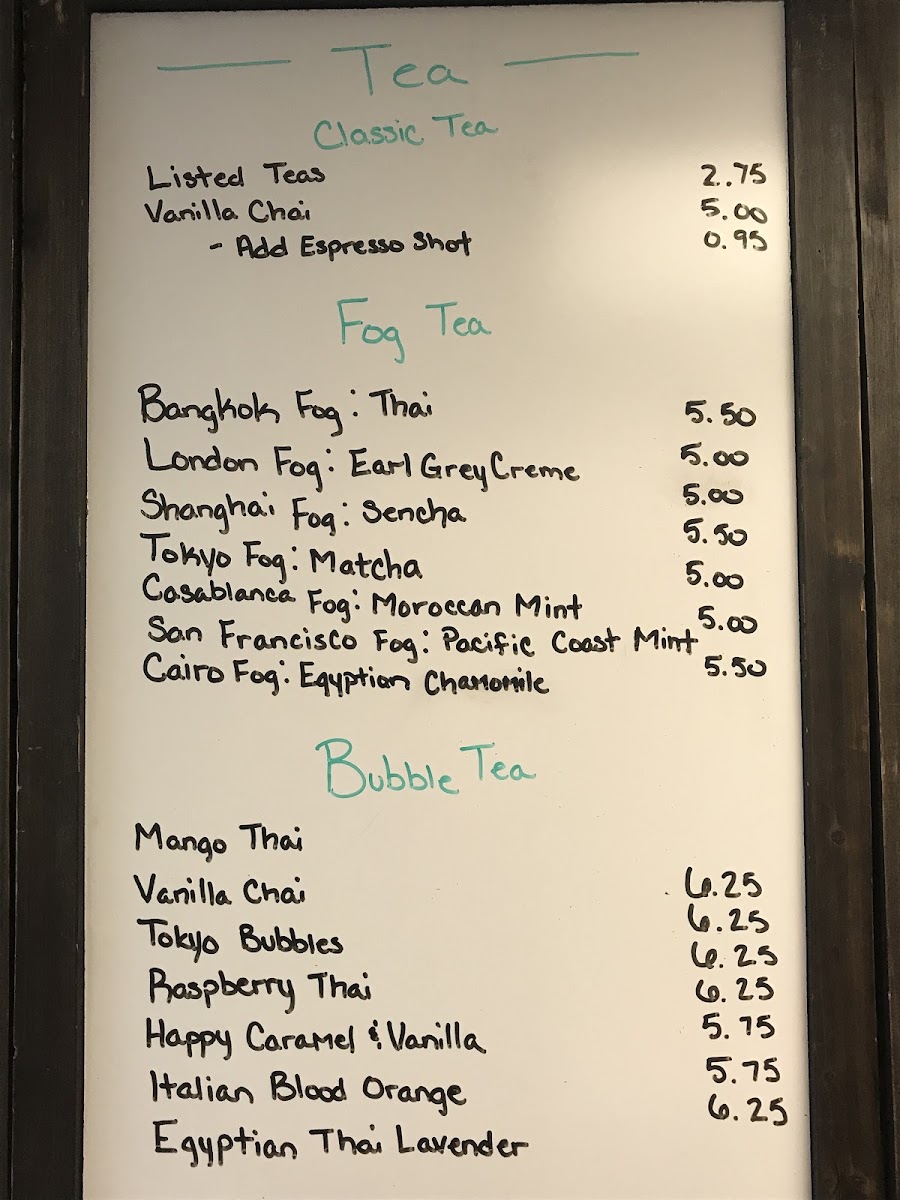 Tea
Classic Tea
Listed Teas 2.75
Vanilla Chai 5.00
- Add Espresso Shot 0.95
Fog Tea
Bangkok Fog: Thai 5.50
London Fog: Earl Grey Creme 5.00
Shanghai Fog: Sencha 5.00
Tokyo Fog: Matcha 5.50
Casablanca Fog: Moroccan Mint 5.00
San Francisco Fog: Pacific Coast Mint 5.00
Cairo Fog: Egyptian Chamomile 5.50
Bubble Tea
Mango Thai 6.25
Vanilla Chai 6.25
Tokyo Bubbles 6.25
Raspberry Thai 6.25
Happy Caramel & Vanilla 5.75
Italian Blood Orange 5.75
Egyptian Thai Lavender 6.25